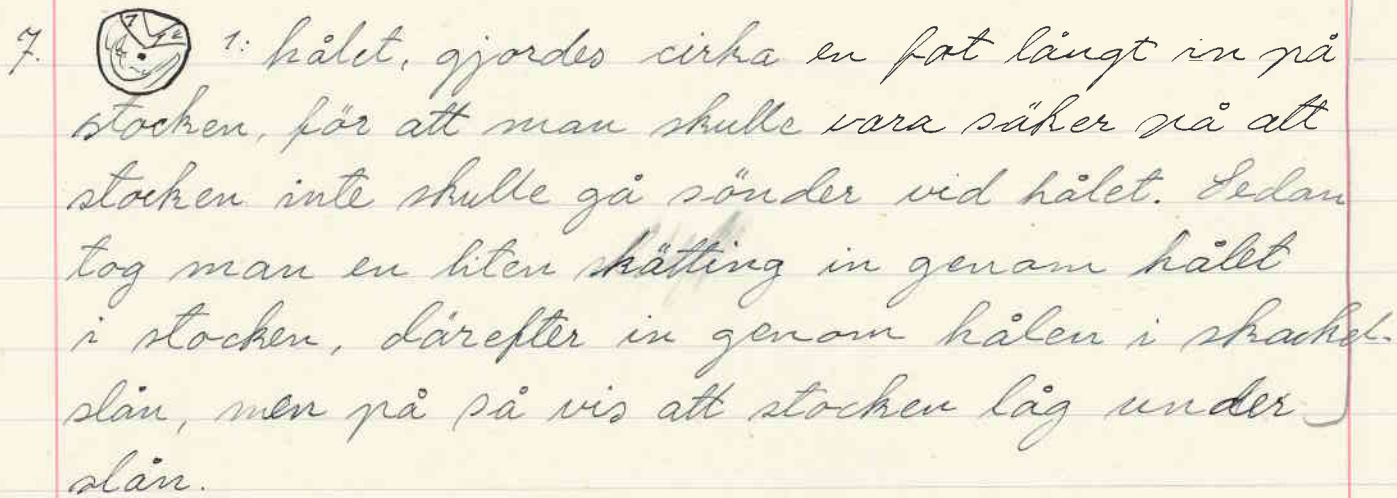 7. 1: hålet, gjordes cirka en fot långt in på
stocken, för att man skulle vara säker på att
stocken inte skulle gå sönder vid hålet. Sedan
tog man en liten kätting in genom hålet
i stocken, därefter in genom hålen i skackel-
slån, men på så vis att stocken låg under
slån.